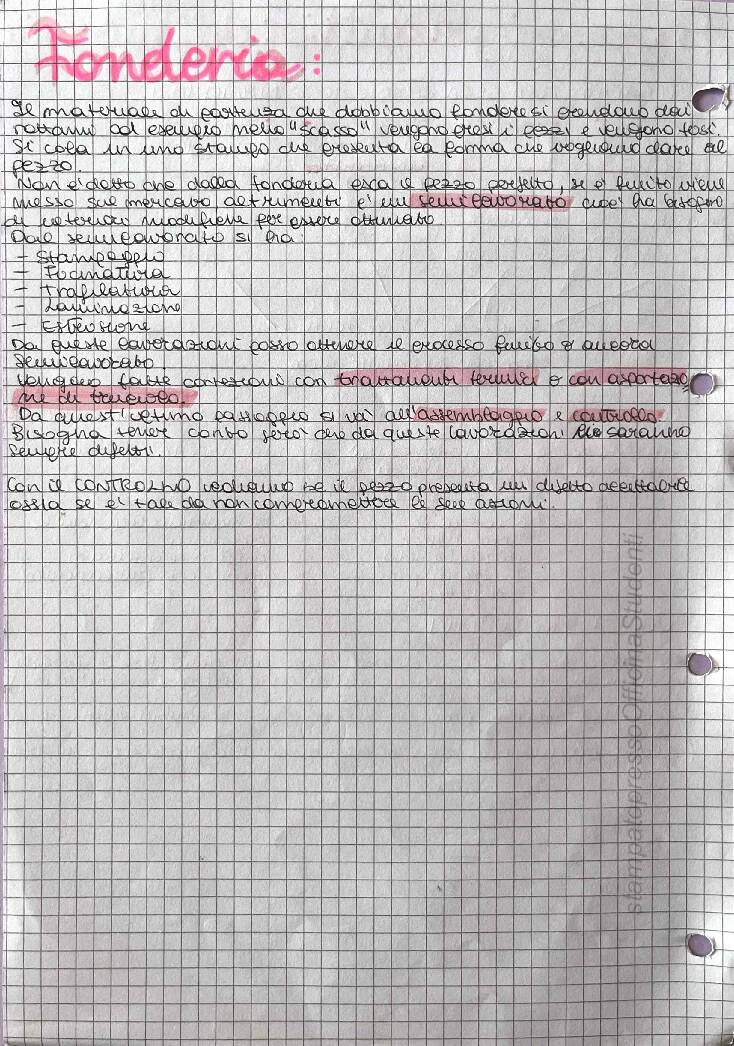 Fonderia:
Il materiale di partenza che dobbiamo fondere si prendono dai
rottami ad esempio nello "scasso" vengono presi i pezzi e vengono fusi.
Si cola in uno stampo che presenta la forma che vogliamo dare al
pezzo.
Non e' detto che dalla fonderia esca il pezzo perfetto, se e' finito viene
messo sul mercato, altrimenti e' un semilavorato cioe' ha bisogno
di ulteriori modifiche per essere ultimato
Dal semilavorato si ha:
- Stampaggio
- Fucinatura
- Trafilatura
- Laminazione
- Estrusione
Da queste lavorazioni posso ottenere il processo finito o ancora
semilavorato
Vengono fatte correzioni con trattamenti termici o con asportazio
ne di truciolo.
Da quest'ultimo passaggio si va all'assemblaggio e controllo.
Bisogna tener conto pero' che da queste lavorazioni ci saranno
sempre difetti.
Con il CONTROLLO vediamo se il pezzo presenta un difetto accettabile
ossia se e' tale da non compromettere le sue azioni.
stampatopressoOfficinaStudenti